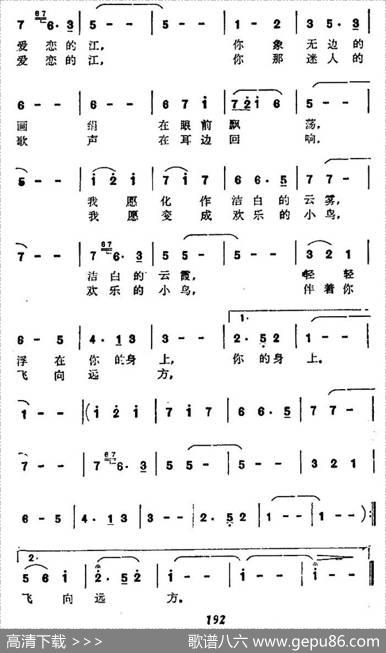 7 6 7 6· 3 | 5 - - | 5 - - | 1 - 2 | 3 5· 3
爱恋的江, 你象无边的
爱恋的江, 你那迷人的
6 - - | 6 - - | 6 7 i | 7 2 i 6 | 5 - -
画绢在眼前飘荡,
歌声在耳边回响,
5 - - | i 2 i | 7 i 7 | 6 6· 5 | 7 7 -
我愿化作洁白的云雾,
我愿变成欢乐的小鸟,
7 - - | 7 6 7 6· 3 | 5 5 - | 5 - - | 3 2 1
洁白的云霞, 轻轻
欢乐的小鸟, 伴着你
1.
6 - 5 | 4· 1 3 | 3 - - | 2· 5 2 | 1 - -
浮在你的身上, 你的身上。
飞向远方,
1 - - | (i 2 i | 7 i 7 | 6 6· 5 | 7 7 -
7 - - | 7 6 7 6· 3 | 5 5 - | 5 - - | 3 2 1
6 - 5 | 4· 1 3 | 3 - - | 2· 5 2 | 1 - - | 1 - ) :‖
2.
5 6 i | 2· 5 2 | i - - | i - - | i - - ‖
飞向远方。
192
高清下载 >>> 歌谱八六 www.gepu86.com